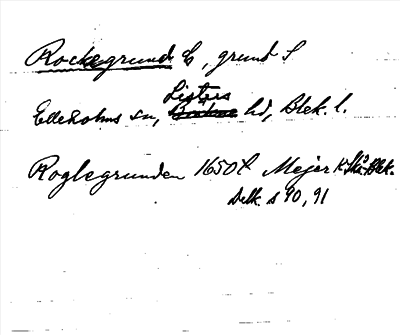 Rockegrund C, grund S
Elleholms sn, Listers hd, Blek. l.
Roglegrunden 1650t Mejer K Skå-Blek.
Delk. s 90, 91